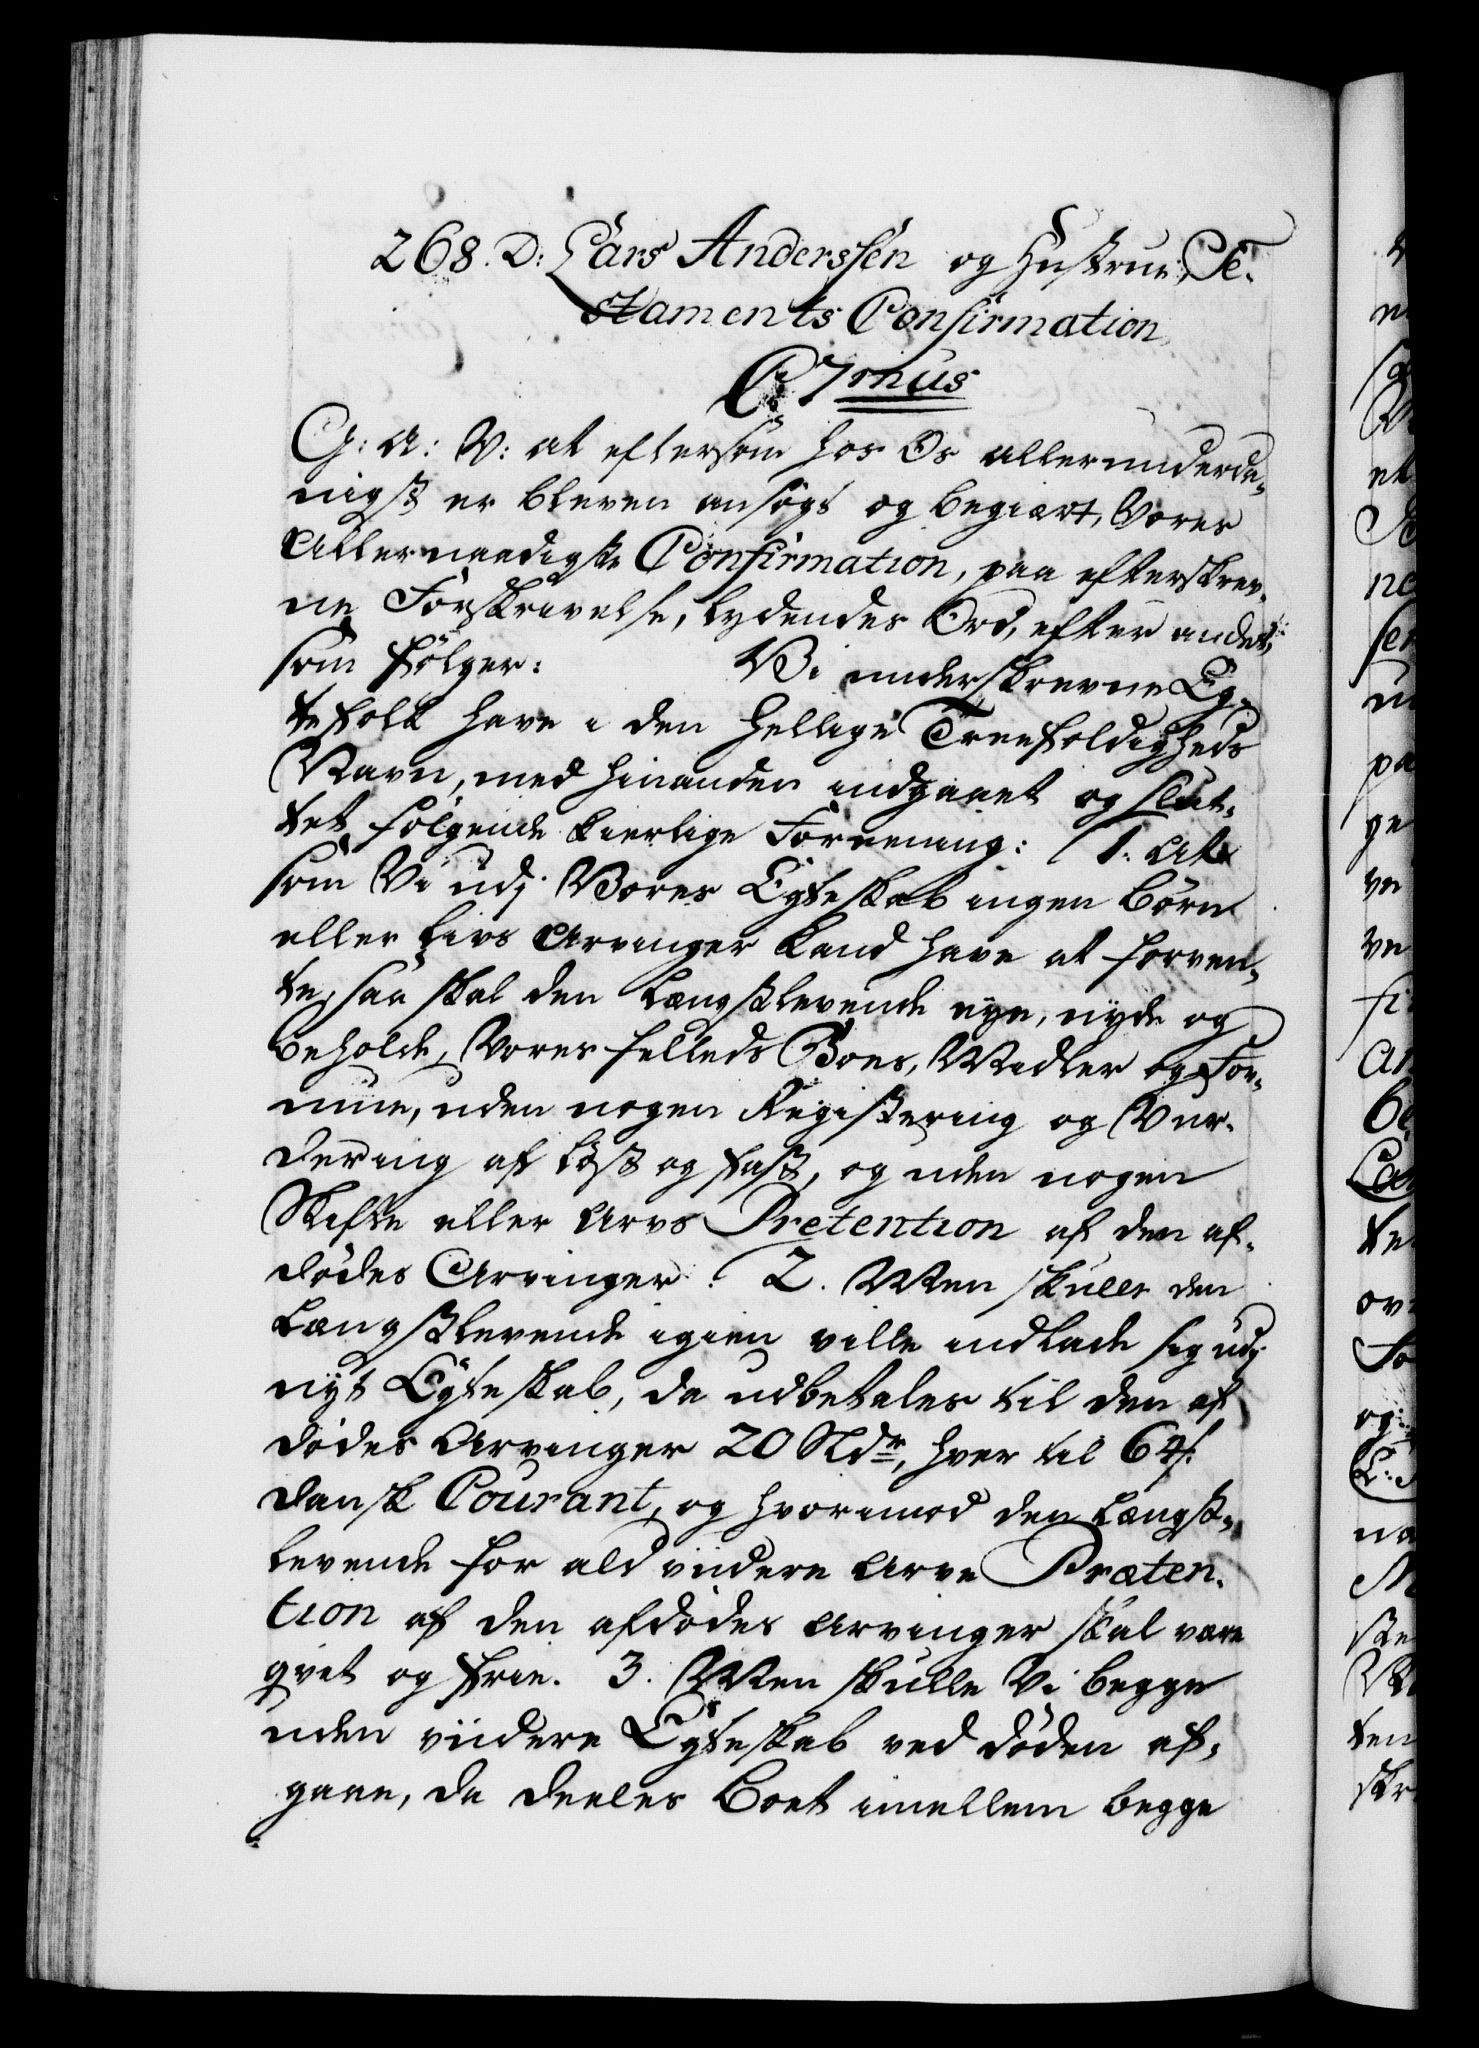 268. D: Lars Anderssen og Hustrue, Te-
staments Confirmation
C 7mus
G: A: V: at eftersom hos Os allerunderda-
nigst er bleven ansøgt og begiært, Vores
Allernaadigste Confirmation, paa efterskrev-
ne Forskrivelse, lydendes Ord, efter andet,
som følger: Vi underskrevne Eg-
tefolk have i den hellige Treefoldigheds
Navn, med hinanden indgaaet og slut-
tet følgende kierlige Foreening: 1. At
som Vi udj Vores Egteskab ingen Børn
eller Livs Arvinger kand have at forven-
te, saa skal den Længstlevende eye, nyde og
beholde, Vores felleds Boes, Midler og For-
mue, uden nogen Registering og Vur-
dering af løst og fast, og uden nogen
Skifte eller Arvs Pretention af den af-
dødes Arvinger. 2. Men skulle den
Længstlevende igien ville indlade sig udj
nyt Egteskab, da udbetales til den af
dødes Arvinger 20 Rdr, hver til 64 s.
dansk Courant, og hvorimod den Længst-
levende for ald viidere Arve Præten-
tion af den afdødes Arvinger skal være
qvit og frie. 3. Men skulle Vi begge
uden viidere Egteskab ved døden af-
gaae, da deeles Boet imellem begge